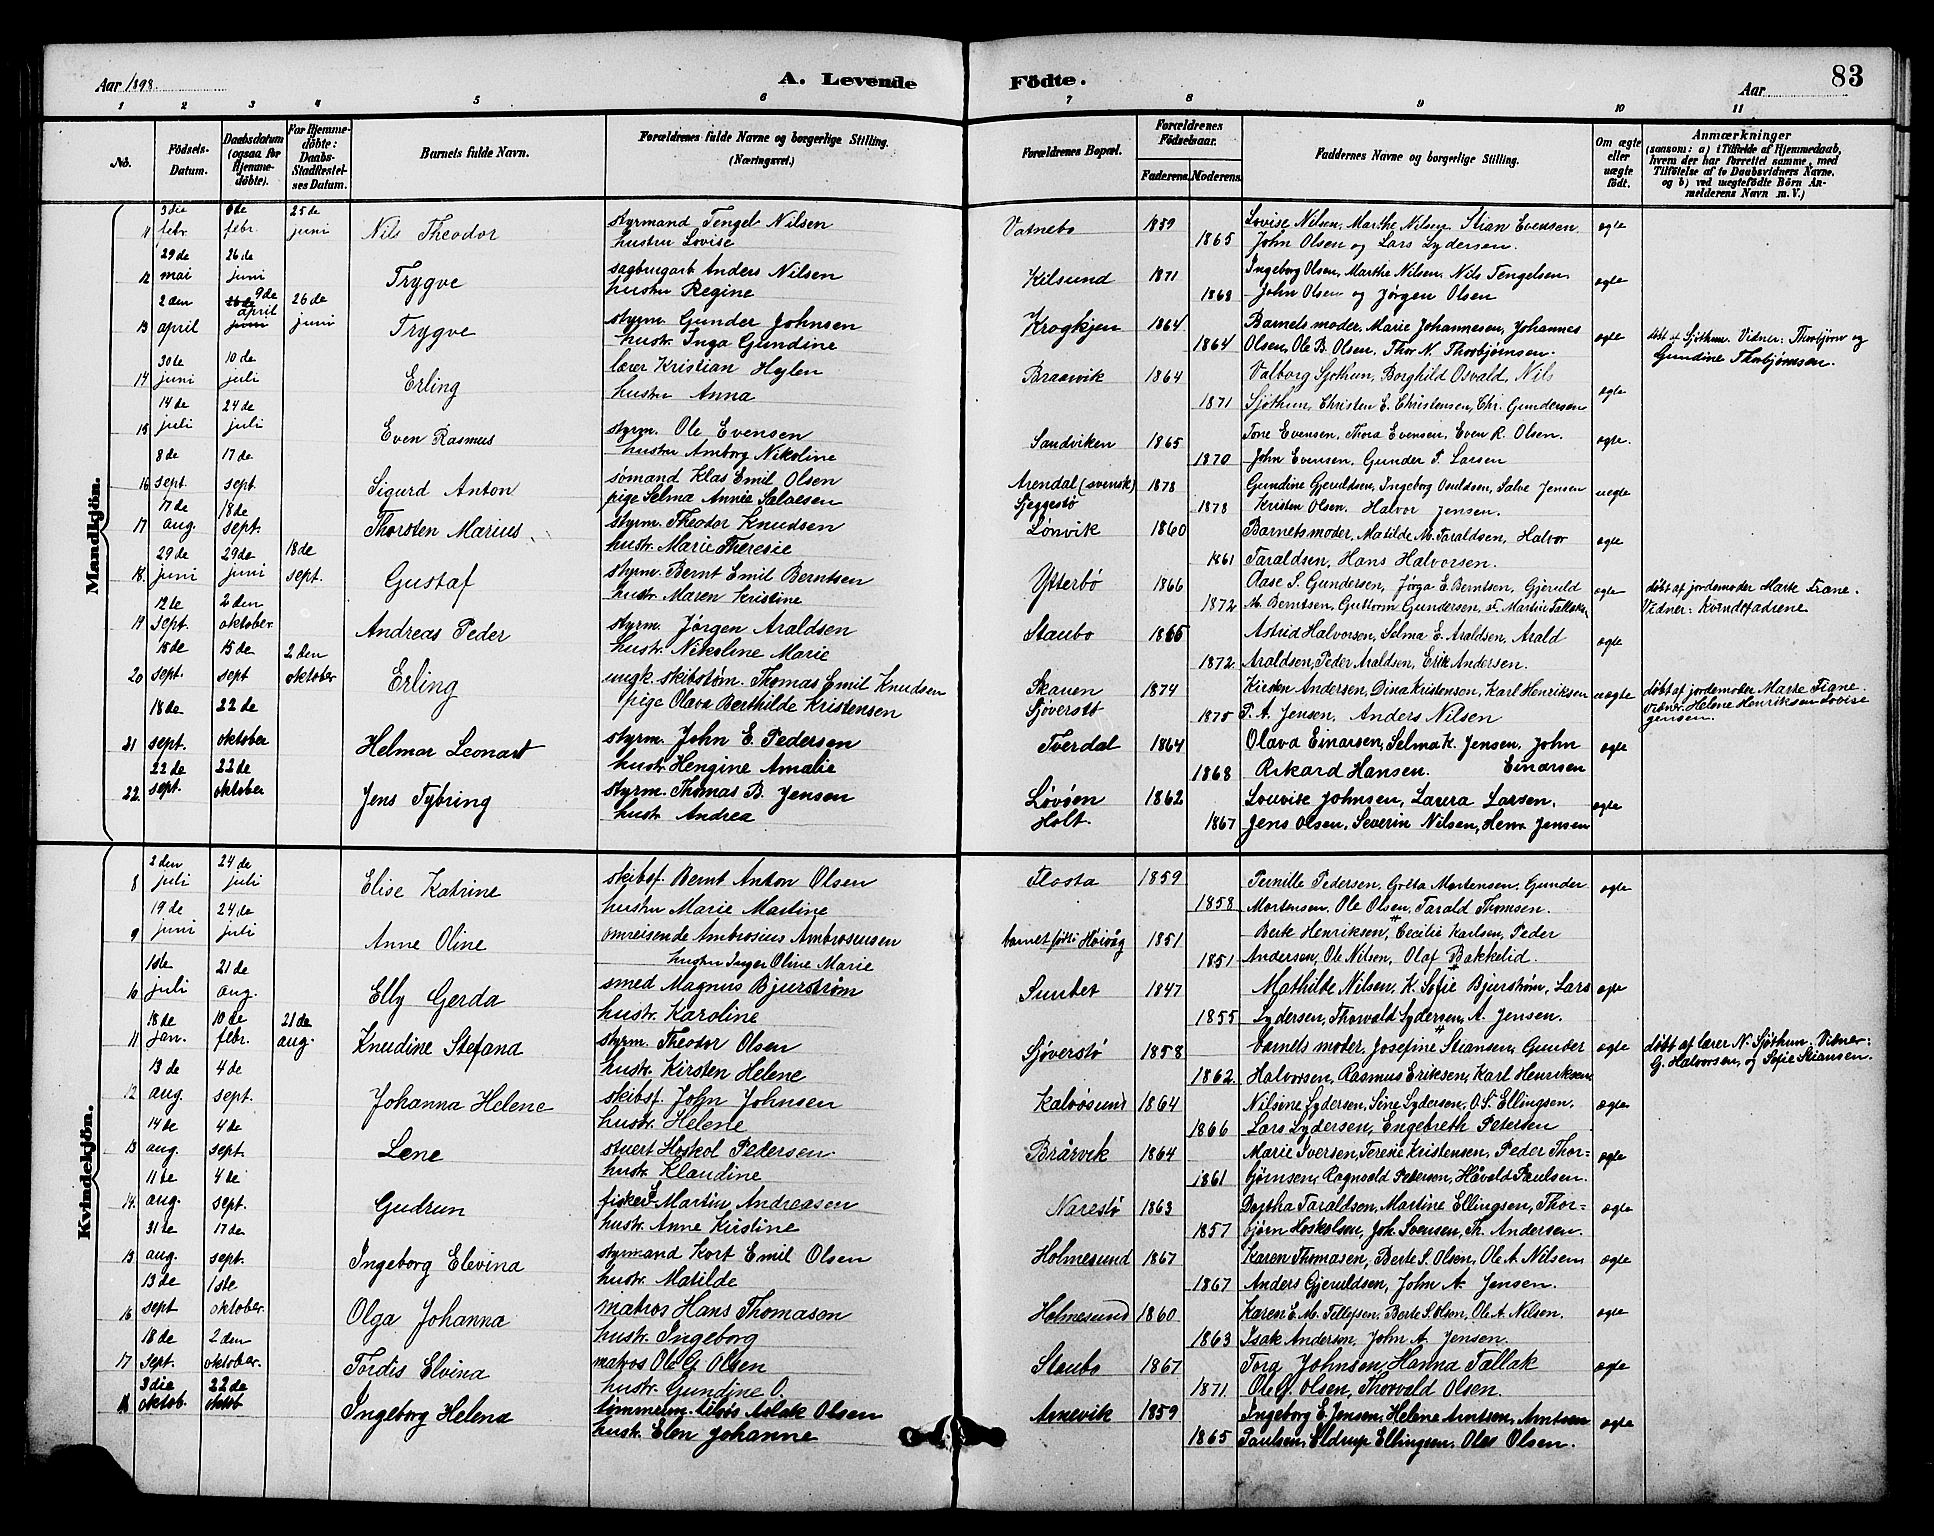 Aar 1898.
A. Levende Födte.
Aar
83
1 2 3 4 5 6 7 8 9 10 11
No.
Födsels-Datum.
Daabsdatum (ogsaa for Hjemme-döbte).
For Hjemme-döbte: Daabs-Stadfæstel-ses Datum.
Barnets fulde Navn.
Forældrenes fulde Navne og borgerlige Stilling. (Næringsvei.)
Forældrenes Bopæl.
Forældrenes Födselsaar.
Faderens. Moderens.
Faddernes Navne og borgerlige Stilling.
Om ægte eller uægte födt.
Anmærkninger
(saasom: a) i Tilfælde af Hjemmedaab, hvem der har forrettet samme, med Tilföielse af to Daabsvidners Navne, og b) ved uegtefödte Börn An-melderens Navn m. V.)
Mandkjön.
11 3die febr 6de febr. 25de juni Nils Theodor styrmand Tengel Nilsen Vatnebo 1859 Lovise Nilsen, Marthe Nilsen, Stian Evensen ægte
hustru Lovise 1865 John Olsen og Lars Lydersen.
12 29de mai 26de juni Trygve sagbrugarb Anders Nilsen Kilsund 1871 Ingeborg Olsen, Marthe Nilsen, Nils Tengelsen, ægte
hustru Regine 1868 John Olsen og Jørgen Olsen
13 2den april 9de april 26de juni Trygve styrm. Gunder Johnsen Krogkjen 1864 Barnets moder, Marie Johannesen, Johannes ægte døbt af Sjöthun. Vidner: Thorbjörn og
hustr. Inga Gundine 1864 Olsen, Ole B. Olsen, Thor N. Thorbjørnsen. Gundine Thorbjørnsen.
14 30te juni 10de juli Erling lærer Kristian Hylen Braarvik 1864 Valborg Sjøthun, Borghild Osvald, Nils ægte
hustru Anna 1871 Sjøthun, Christen E. Christensen, Chr. Gundersen
15 14de juli 24de juli Even Rasmus styrm. Ole Evensen Sandviken 1865 Tone Evensen, Thora Evensen, Even R. Olsen. ægte.
hustru Amborg Nikoline 1870 John Evensen, Gunder T. Larsen
16 8de sept. 17de sept. Sigurd Anton sømand Klas Emil Olsen Arendal (svensk) 1878 Gundine Gjeruldsen, Ingeborg Osuldsen, Salve Jensen uegte
pige Selma Annie Salvesen Sjeggestø 1878 Kristen Olsen, Halvor Jensen.
17 17de aug. 18de sept. Thorsten Marius styrm. Theodor Knudsen Lønvik 1860 Barnets moder, Matilde M. Taraldsen, Halvor ægte
hustr. Marie Theresie 1861 Taraldsen, Hans Halvorsen.
18. 29de juni 29de juni 18de sept. Gustaf styrm. Bernt Emil Berntsen Ytterbö 1866 Aase S. Gundersen, Jørga E. Berntsen, Gjeruld ægte døbt af jordemoder Marte Trane.
hustr. Maren Kristine 1872 M. Berntsen, Guttorm Gundersen, Martin Tallaks. Vidner: Kvindefadrene
19 12te sept. 2den oktober Andreas Peder styrm. Jørgen Araldsen Staubo 1865 Astrid Halvorsen, Selma E. Araldsen, Arald ægte
hustr. Nikoline Marie 1872 Araldsen, Peder Araldsen, Erik Andersen.
20 15de sept. 15de sept 2den oktober Erling ungk. skibstøm. Thomas Emil Knudsen Skauen 1874 Kirsten Andersen, Dina Kristensen, Karl Henriksen uægte døbt af jordemoder Marte Trane.
pige Olava Berthilde Kristensen Sjøverstø 1875 P. A. Jensen, Anders Nilsen Vidner. Helene Henriksen Lovise Jensen.
21 18de sept. 22de oktober Helmar Leonart styrm. John E. Pedersen Tverdal 1864 Olava Einarsen, Selma K. Jensen, John ægte
hustr. Hengine Amalie 1868 Rikard Hansen. Einarsen
22. 22de sept. 22de oktober Jens Tybring styrm. Thomas B. Jensen Løvøen 1862 Louvise Johnsen, Laura Larsen, ægte
hustr. Andrea Holt. 1867 Jens Olsen, Severin Nilsen, Henr. Jensen
Kvindekjön.
8 2den juli 24de juli Elise Katrine skibsf. Bernt Anton Olsen Flosta 1859 Pernille Pedersen, Greta Mortensen, Gunder ægte
hustru Marie Mastine 1858 Mortensen, Ole Olsen, Tarald Thomsen.
9 19de juni 24de juli Anne Oline omreisende Ambrosius Ambrosiusen barnet født i Høivåg 1851 Berte Henriksen, Cecilie Karlsen, Peder
hustru Inger Oline Marie 1851 Andersen, Ole Nilsen, Olaf Bakkelid.
10 1ste juli 21de aug. Elly Gerda smed Magnus Bjurstrøm Sundet 1847 Mathilde Nilsen, K. Sofie Bjurstrøm, Lars ægte
hustr. Karoline 1855 Lydersen, Thorvald Lydersen, A. Jensen.
11 18de jan. 10de febr. 21de aug. Knudine Stefana styrm. Theodor Olsen Sjøverstø 1858 Barnets moder, Josefine Stiansen, Gunder ægte døbt af lærer N. Sjöthun. Vidner:
hustr. Kirsten Helene 1862 Halvorsen, Rasmus Eriksen, Karl Henriksen G. Halvorsen, og Sofie Stiansen.
12 13de aug. 4de sept. Johanna Helene skibsf. John Johnsen Kalvøsund 1864 Nilsine Lydersen, Sine Lydersen, O. S. Ellingsen. ægte
hustr. Helene 1866 Lars Lydersen, Engebreth Petersen
13 14de aug. 4de sept. Lene stuert Hoskol Pedersen Brårvik 1864 Marie Iversen, Terese Kristensen, Peder Thor- ægte
hustr. Klaudine 1861 bjørnsen, Ragnvald Pedersen, Håvold Paulsen.
14. 11te aug. 4de sept. Gudrun fisker Martin Andreasen Narestø 1863 Dorthea Taraldsen, Martine Ellingsen, Thor- ægte
hustr. Anne Kirstine 1857 bjørn Hoskolsen, Joh. Svensen, Th. Andersen.
15 31te aug. 17de sept. Ingeborg Elevina styrmand Kort Emil Olsen Holmesund 1867 Karen Thomasen, Berte S. Olsen, Ole A. Nilsen ægte
hustr. Matilde 1867 Anders Gjeruldsen, John A. Jensen.
16 13de sept 1ste oktober. Olga Johanna matros Hans Thomasen Holmesund 1860 Karen E. M. Tellefsen, Berte S. Olsen, Ole A. Nilsen. ægte
hustr. Ingeborg 1863 Isak Andersen, John A. Jensen.
17 18de sept. 2den oktober. Tordis Elvina matros Ole G. Olsen Staubo 1867 Torg Johnsen, Hanna Tallak ægte
hustr. Gundine O. 1871 Ole G. Olsen, Thorvald Olsen.
18 3die oktob. 22de oktob Ingeborg Helene tømmerm. tilsøs Aslak Olsen Arnevik 1859 Ingeborg E. Jensen, Helene Arntsen, Arntsen ægte
hustr. Elen Johanne 1865 Paulsen, Eldrup Ellingsen, Oles Olsen.